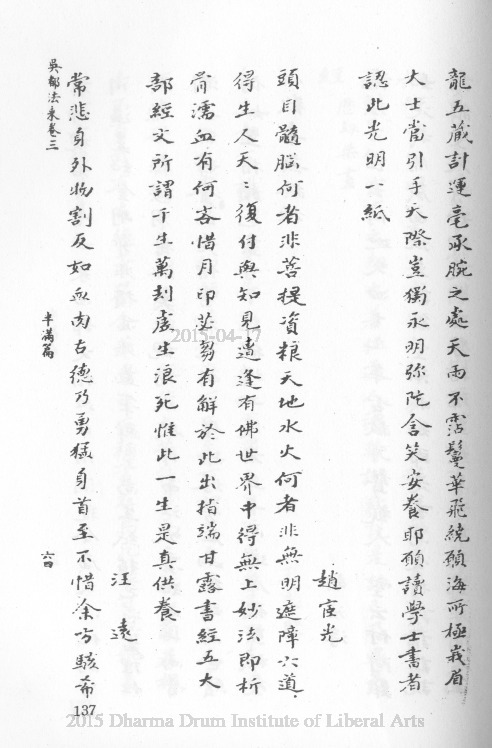 龍五藏計運毫承腕之處天雨不霑鬘華飛繞願海所極峩眉
大士當引手天際豈獨永明彌陀含笑安養耶願讀學士書者
認此光明一紙
趙宧光
頭目髓腦何者非菩提資粮天地水火何者非無明遮障六道
得生人天〻復付與知見遭逢有佛世界中得無上妙法即析
骨濡血有何吝惜月印茲芻有解於此出指端甘露書經五大
部經文所謂千生萬刦虛生浪死惟此一生是真供養
汪遠
常悲身外物割反如血肉古德乃勇猛身首至不惜余方駭希
吳都法乘卷三
半滿篇
六四
137
2015-04-17
2015 Dharma Drum Institute of Liberal Arts